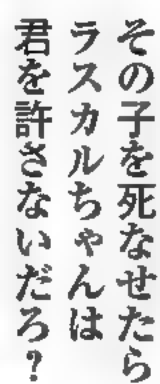 その子を死なせたら
ラスカルちゃんは
君を許さないだろ?